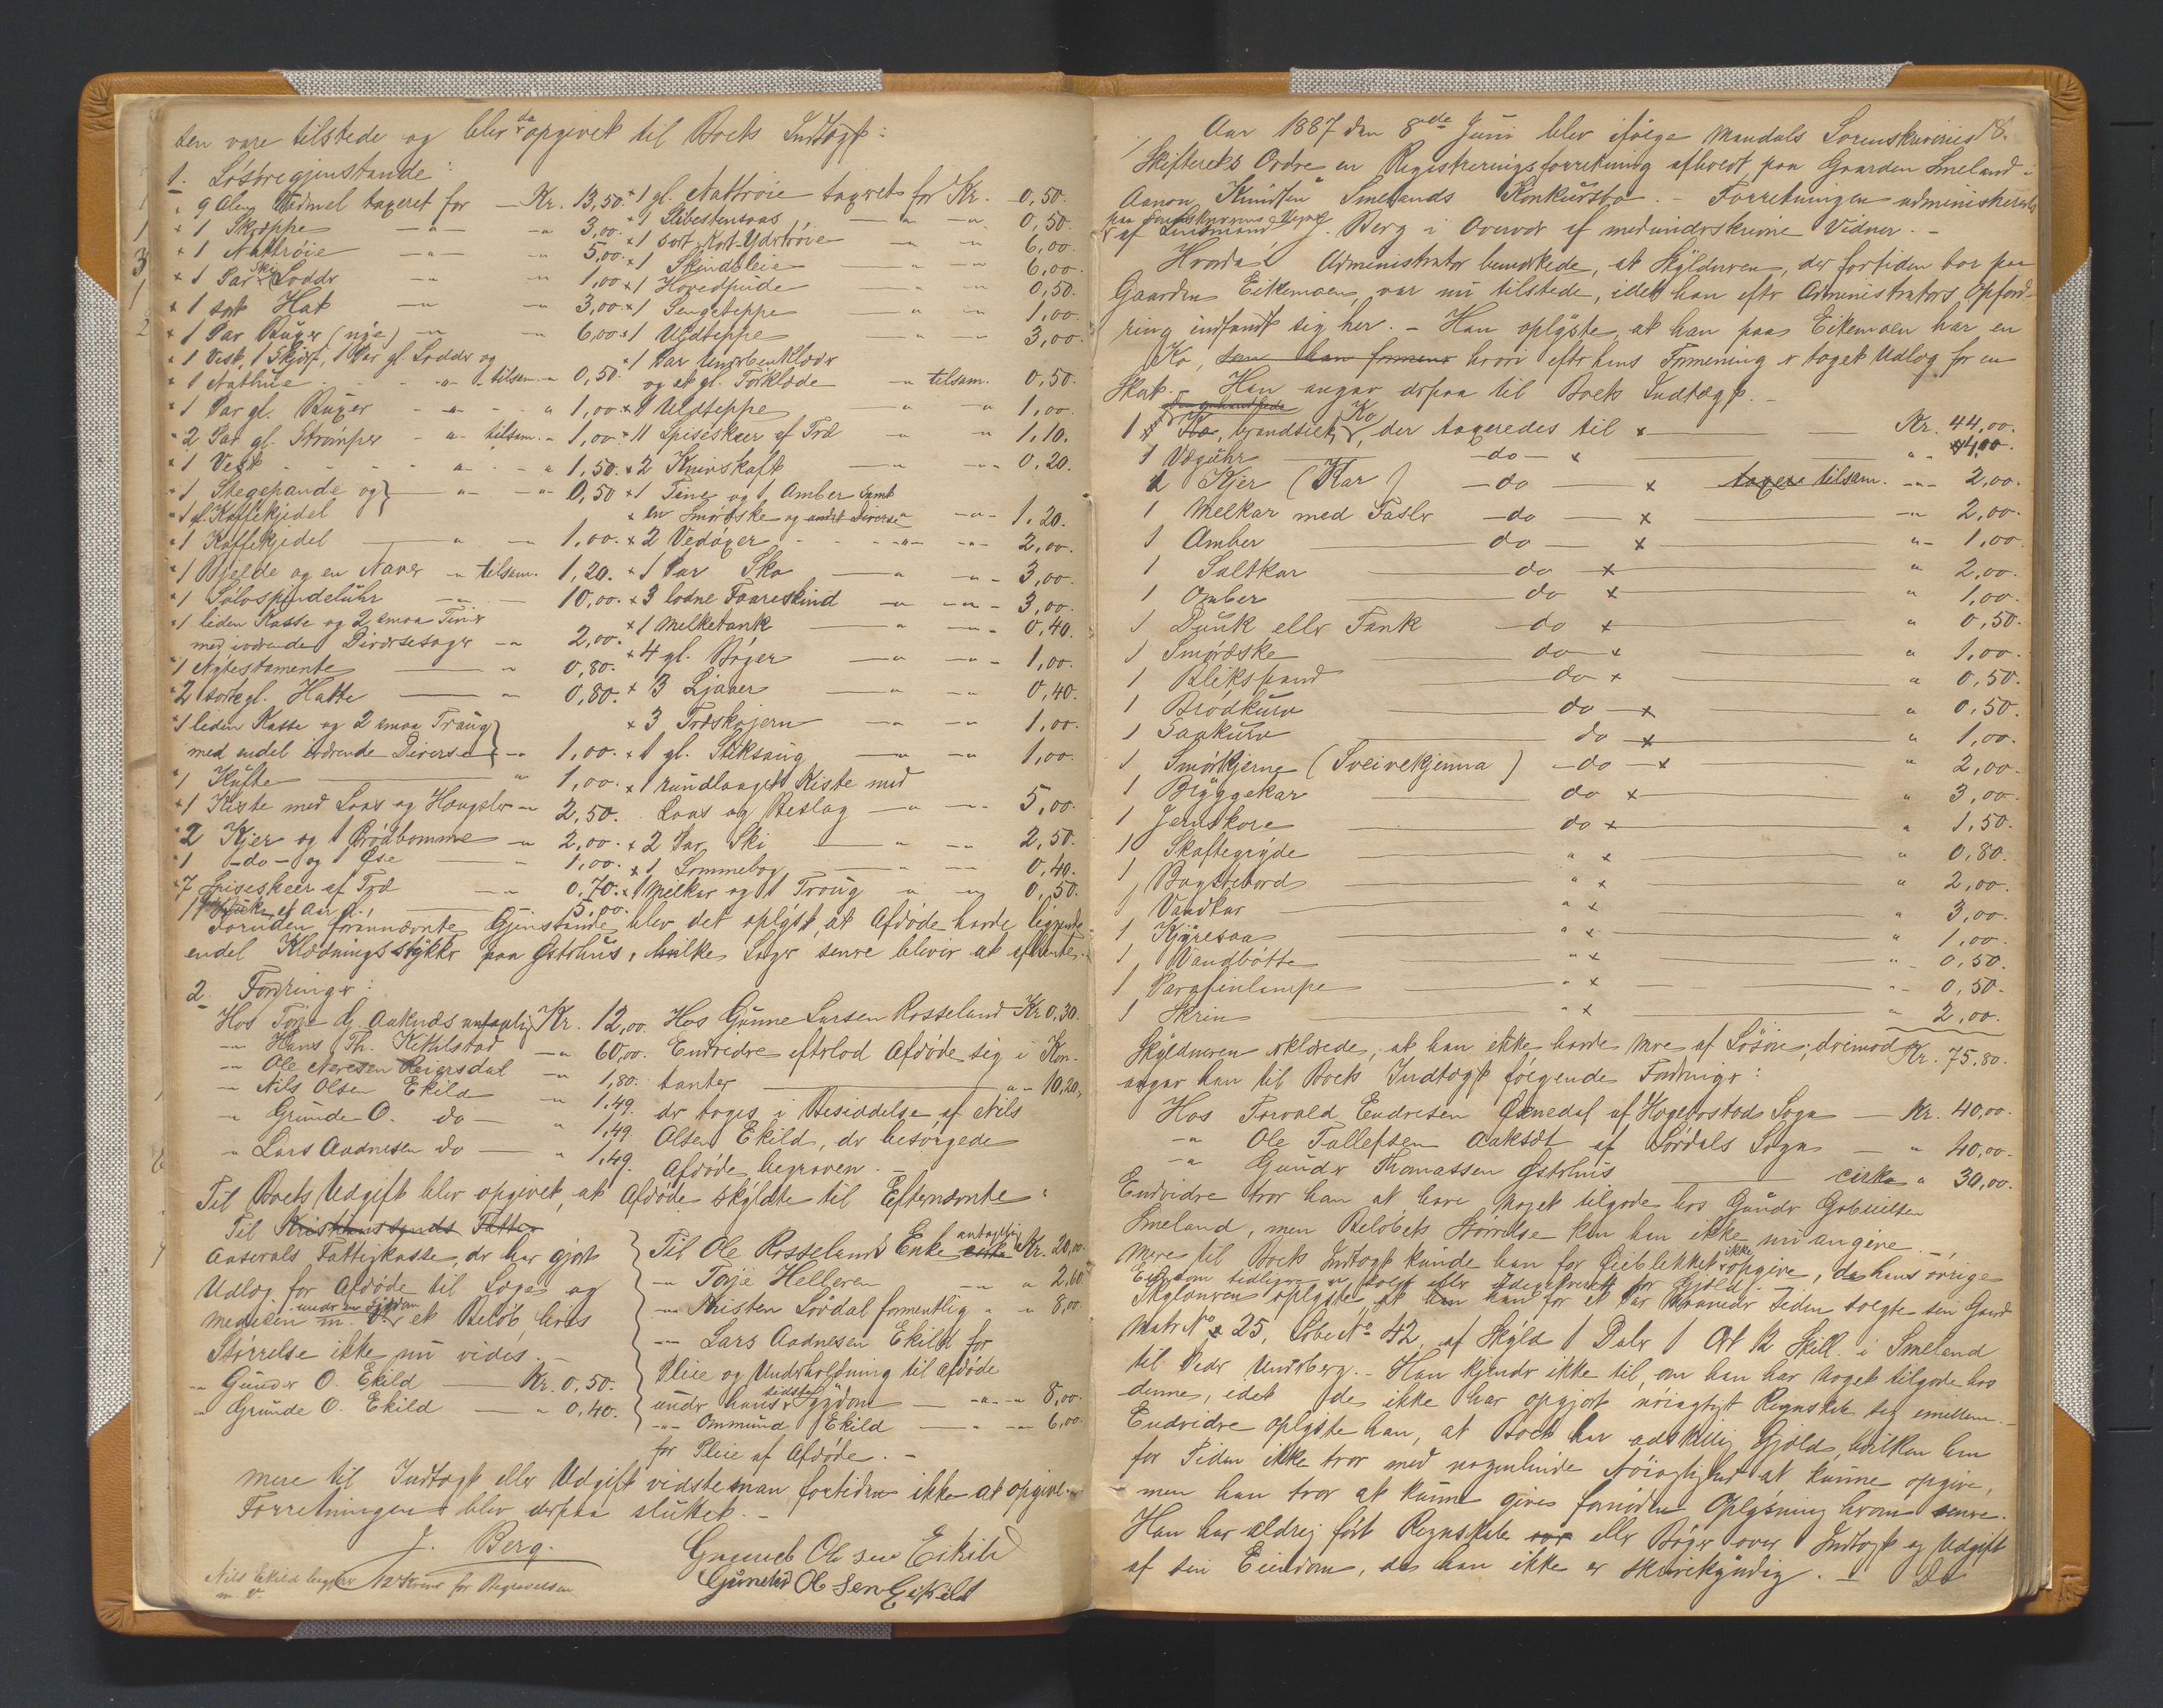 den vare tilstede og blev da opgivet til Boets Indtægt:
1. Løsøregjenstande:
9 Alen Vadmel taxeret for — Kr. 13,50.
1 Skræppe — " — " 3,00.
1 Nattrøie — " — " 5,00.
1 Par Ski Lodder " — " 1,00
1 sort Hat — " — " 3,00
1 Par Buxer (nye) — " — " 6,00
1 Vest, 1 Skjørt, 1 Par gl. Lodder og
1 Nathue - - - " - tilsam. - " 0,50.
1 Par gl. Buxer - " - " 1,00
2 Par gl. Strømper - " - tilsam. " 1,00
1 Vest - - - - " - " 1,50.
1 Stegepande og } — " — " 0,50
1 gl. Kaffekjedel
1 Kaffekjedel — " — " 1,00.
1 Bjelde og en Naver - " tilsam. 1,20.
1 Sølvspindeluhr — " — 10,00.
1 liden Kasse og 2 smaa Tiner
med iværende Diversesager — " 2,00.
1 Nytestamente — " 0,80.
2 sorte gl. Hatte — " 0,80.
1 liden Kasse og 2 smaa Traug
med endel iværende Diverse } — " 1,00.
1 Kufte — " 1,00.
1 Kiste med Laas og Hængsler — " 2,50.
2 Kjer og 1 Brødbomme — " 2,00.
1 - do - og 1 Øse — " 1,00.
7 Spiseskeer af Træ — " 0,70.
5,00.
1 gl. Nattrøie taxeret for Kr. 0,50.
1 Slibestensaas — " — " 0,50.
1 sort Kort-Ydertrøie — " — " 6,00.
1 Skindpleie — " — " 6,00.
1 Hovedpude — " — " 0,50.
1 Sengeteppe — " — " 1,00.
1 Uldteppe — " — " 3,00.
1 Par Underbenklæder
og et gl. Forklæde — " tilsam. 0,50.
1 Uldteppe — " — " 1,00.
11 Spiseskeer af Træ — " — " 1,10.
2 Knivskaft — " — " 0,20.
1 Tine og 1 Amber samt
en Smørøske og andet Diverse — " — 1,20.
2 Vedøxer - - - " - " 2,00.
1 Par Sko — " — " 3,00.
3 lodne Faareskind — " — " 3,00.
1 Melketank — " — " 0,40.
4 gl. Bøger — " — " 1,00.
3 Ljaaer — " — " 0,40.
3 Træskajern — " — " 1,00.
1 gl. Stiksaug — " — " 1,00.
1 rundlaaget Kiste med
Laas og Beslag — " — " 5,00.
2 Par Ski — " — " 2,50.
1 Lommebog — " — " 0,40.
1 Melkar og 1 Traug " — " 0,50.
Foruden forannævnte Gjenstande blev det oplyst, at Afdøde havde liggende
endel Klædningsstykker paa Østrhus, hvilke Sager senere bliver at afhente.
2. Fordringer:
Hos Torje G. Aaknæs antagelig Kr. 12,00.
" Hans Th. Kethlstad — " 60,00.
" Ole Neresen Reiersdal — " 1,80.
" Nils Olsen Ekild — " 1,49.
" Gunde O. do — " 1,49.
" Lars Aadnesen do — " 1,49.
Hos Gunne Larsen Rosseland Kr 0,30.
Endvidere efterlod Afdøde sig i Kon-
tanter — " — 10,20,
der toges i Besiddelse af Nils
Olsen Ekild, der besørgede
Afdøde begraven. —
Til Boets Udgift blev opgivet, at Afdøde skyldte til Efternævnte:
Til Kristianssands Fatter
Aaserals Fattigkasse, der har gjort
Udlæg for Afdøde til Læge og
Medicin under en Sygdom m. v. et Beløb, hvis
Størrelse ikke nu vides. —
" Gunder O. Ekild — Kr. 0,50.
" Grunde O. Ekild — " 0,40.
Til Ole Rosselands Enke antagelig cirka Kr. 20,00.
" Torje Helleren — " " 2,60.
" Kristen Lordal formentlig " " 8,00.
" Lars Aadnesen Ekild for
Pleie og Underholdning til Afdøde
under hans sidste Sygdom — " — " 8,00.
" Ommund Ekild — " — " 6,00.
for Pleie af Afdøde. —
Mere til Indtægt eller Udgift vidste man fortiden ikke at opgive. —
Forretningen blev derpaa sluttet. —
J. Berg.
Gunneld Olsen Eikild
Gunder Olsen Eikild
Nils Ekild 12 Kroner for Begravelsen
m. v.
18.
Aar 1887 den 8de Juni blev ifølge Mandals Sorenskriveries
Skifterets Ordre en Registreringsforretning afholdt paa Gaarden Smeland i
Aanon Knudsen Smelands Konkursbo. — Forretningen administreredes
paa Sorenskriverens Vegne af Lensmand J. Berg i Overvær af medunderskrivne Vidner. —
Hvorda: Administrator bemærkede, at Skyldneren, der fortiden bor paa
Gaarden Eikemoen, var nu tilstede, idet han efter Administrators Opford-
ring indfandt sig her. — Han oplyste, at han paa Eikemoen har en
Ko, som han formener hvori efter hans Formening er taget Udlæg for en
Skat. — Han angav derpaa til Boets Indtægt. —
1 Ko, brandsidet, Ko der taxeredes til x — Kr. 44,00.
1 Vægûhr — do — x — " 4,00.
2 Kjer (Kar) — do — x taxere tilsam. — " 2,00.
1 Melkar med Fasler — do — x — " 2,00.
1 Amber — do — x — " 1,00
1 Saltkar — do x — " 2,00.
1 Amber — do x — " 1,00.
1 Dunk eller Tank — do x — " 0,50.
1 Smørøske — do x — " 1,00.
1 Blikspand — do x — " 0,50.
1 Brødkurv — do — x — " 0,50.
1 Saakurv — do x — " 1,00.
1 Smørkjerne (Sveivekjenna) — do — x — " 2,00.
1 Byggekar — do x — " 3,00.
1 Jernskore — do x — " 1,50.
1 Skaftegryde — " x — " 0,80.
1 Bagstebord — " x — " 2,00.
1 Vandkar — " x — " 3,00.
1 Kjyresaa — " x — " 1,00.
1 Vandbøtte — " x — " 0,50.
1 Parafinlampe — " x — " 0,50.
1 Skrin — " x — " 2,00.
Skyldneren erklærede, at han ikke havde mere af Løsøre; derimod Kr. 75,80.
angav han til Boets Indtægt følgende Fordringer:
Hos Torvald Endresen Øknedal af Hægebostad Sogn — Kr. 40,00.
" Ole Tallefsen Aaksæt af Lørdals Sogn — " 40,00.
" Gunder Thomassen Østrhus — cirka " 30,00.
Endvidere tror han at have noget tilgode hos Gunder Gabrielsen
Smeland, men Beløbets Størrelse kan han ikke nu angive. —,
Mere til Boets Indtægt kunde han for Øieblikket ikke opgive, da hans øvrige
Eiendom tidligere er solgt eller udlagt for Gjæld. —
Skyldneren oplyste, at han for et Par Maaneder siden solgte sin Gaard
Matr. No 25, Løbe No 42 af Skyld 1 Daler 1 Ort 12 Skill. i Smeland
til Peder Undeberg. — Han kjender ikke til, om han har noget tilgode hos
denne, idet de ikke har opgjort nøiagtigt Regnskab sig imellem. —
Endvidere oplyste han, at Boet har adskillig Gjæld, hvilken han
for Tiden ikke tror med nogenlunde Nøiagtighed at kunne opgive,
— men han tror at kunne give fornøden Oplysning herom senere.
Han har aldrig ført Regnskab over eller Bøger over Indtægt og Udgift
af sin Eiendom, da han ikke er skrivekyndig. — Da